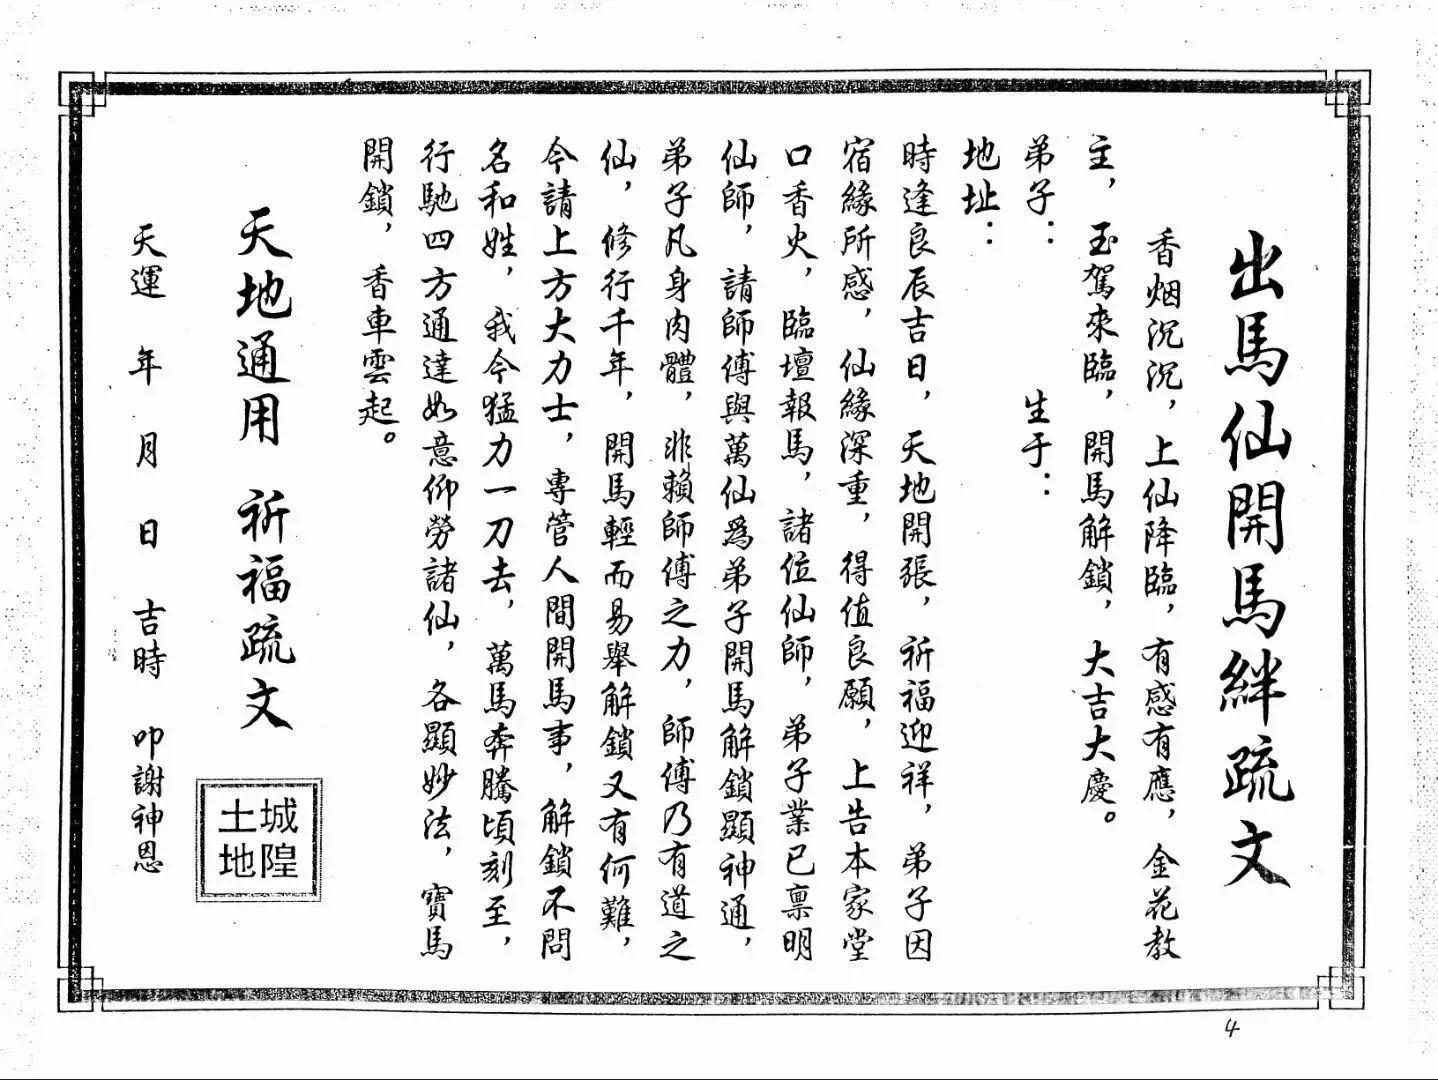 出馬仙開馬絆疏文
香烟沉沉，上仙降臨，有感有應，金花教
主，玉駕來臨，開馬解鎖，大吉大慶。
弟子：　生于：
地址：
時逢良辰吉日，天地開張，祈福迎祥，弟子因
宿緣所感，仙緣深重，得值良願，上告本家堂
口香火，臨壇報馬，諸位仙師，弟子業已禀明
仙師，請師傅與萬仙爲弟子開馬解鎖顯神通，
弟子凡身肉體，非賴師傅之力，師傅乃有道之
仙，修行千年，開馬輕而易舉解鎖又有何難，
今請上方大力士，專管人間開馬事，解鎖不問
名和姓，我今猛力一刀去，萬馬奔騰頃刻至，
行馳四方通達如意仰勞諸仙，各顯妙法，寶馬
開鎖，香車雲起。
天地通用　祈福疏文
城隍
土地
天運　年　月　日　吉時　叩謝神恩
4